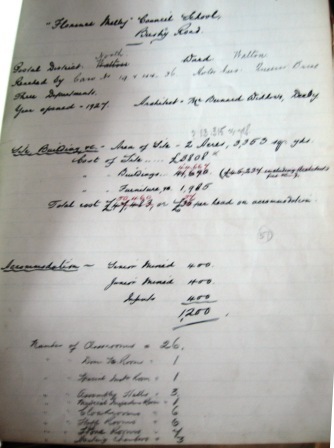 "Florence Melly" Council School,
Bushy Road.
North
Postal District. Walton Ward. Walton
Reached by Cars No 19 & 44, 36. Motor bus. Queens Drive
Three Departments.
Year opened - 1927. Architect - Mr Bernard Widdows, Derby
Site, Building &c - Area of Site - 2 Acres, 3,353 sq. yds.
Cost of Site .... £3808
" Buildings 41,690 (£45,234 including Architects
" Furniture, &c. 1,965
Total cost £47,463, or £36 per head on accommodation.
Accommodation - Senior Mixed 400.
Junior Mixed 400.
Infants 400
1,200
Number of Classrooms = 26.
" " Room = 1
" " Room = 1
" " Assembly Halls = 3
" " Room = 1
" " Cloakrooms = 6
" " Staff Rooms = 6
" " Store Rooms =
" " = 3